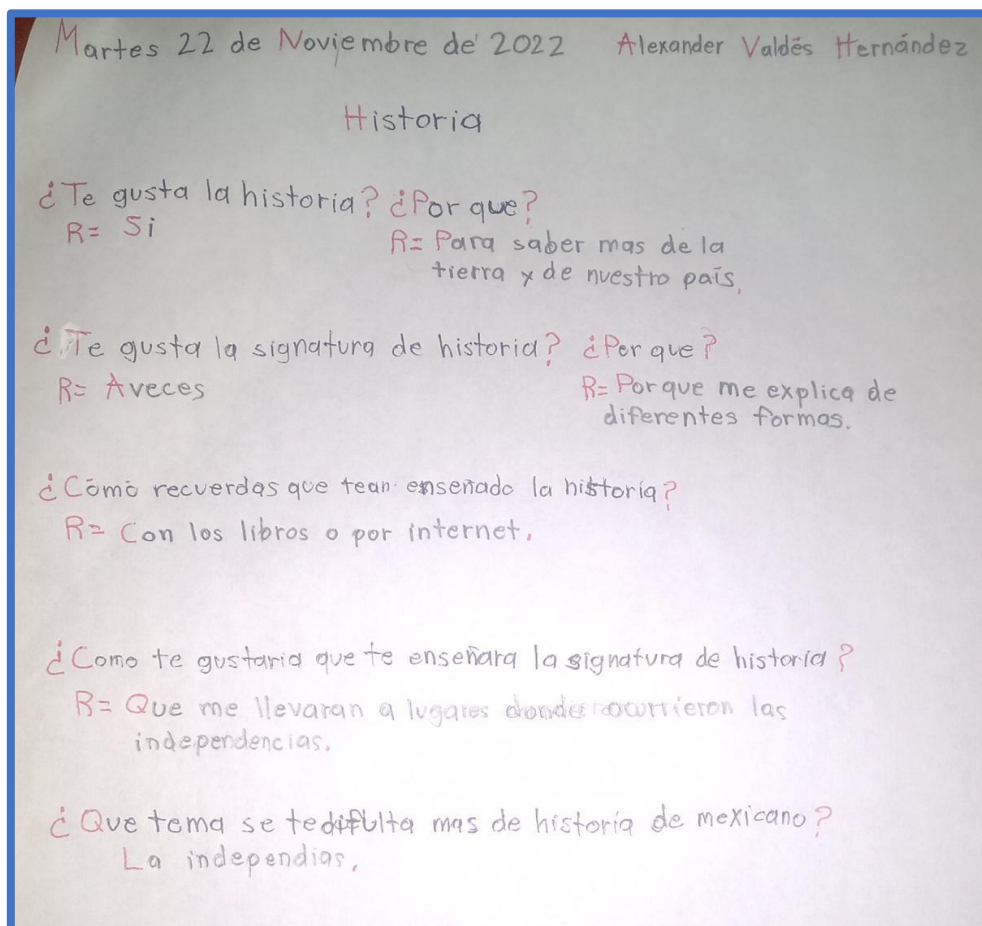 Martes 22 de Noviembre de 2022 Alexander Valdés Hernández
Historia
¿Te gusta la historia? ¿Por que?
R= Si
R= Para saber mas de la
tierra y de nuestro país.
¿Te gusta la signatura de historia? ¿Por que?
R= Aveces
R= Porque me explica de
diferentes formas.
¿Cómo recuerdas que tean enseñado la historia?
R= Con los libros o por internet.
¿Como te gustaria que te enseñara la signatura de historia?
R= Que me llevaran a lugares donde ocurrieron las
independencias.
¿Que tema se te difulta mas de historia de mexicano?
La independias.